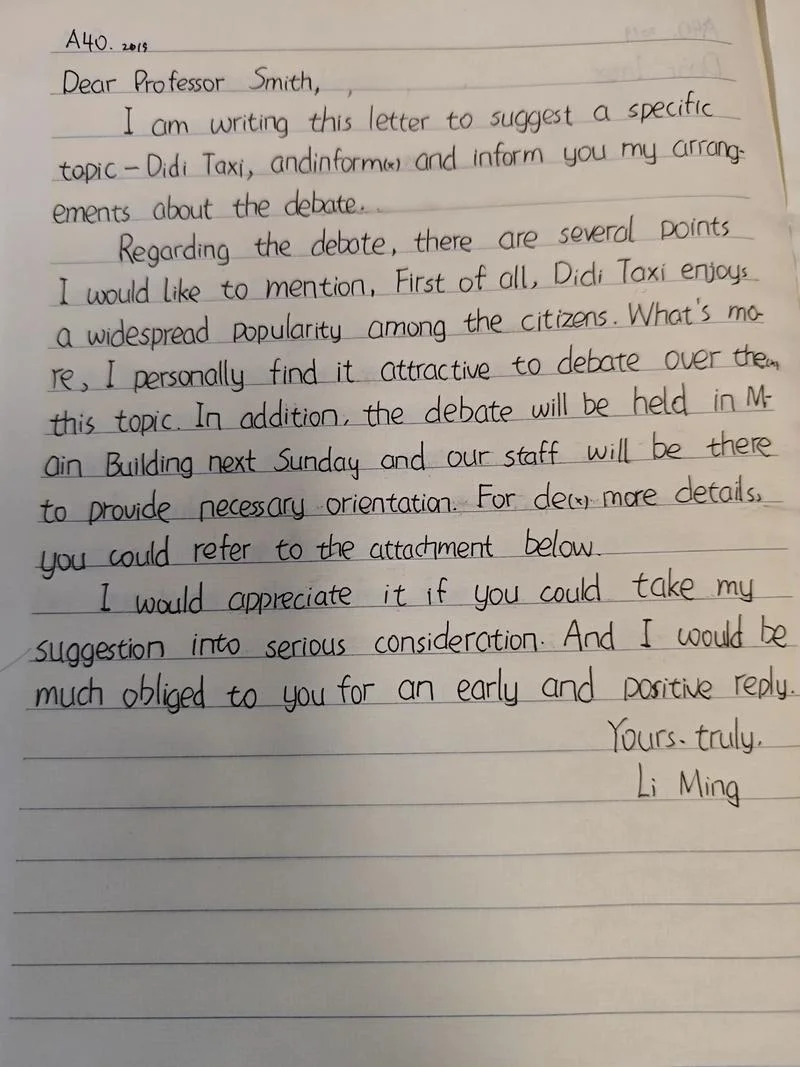 A40. 2019
Dear Professor Smith,
I am writing this letter to suggest a specific
topic - Didi Taxi, andinform(x) and inform you my arrang-
ements about the debate.
Regarding the debate, there are several points
I would like to mention, First of all, Didi Taxi enjoys
a widespread popularity among the citizens. What's mo-
re, I personally find it attractive to debate over the
this topic. In addition, the debate will be held in M-
ain Building next Sunday and our staff will be there
to provide necessary orientation. For de(x) more details,
you could refer to the attachment below.
I would appreciate it if you could take my
suggestion into serious consideration. And I would be
much obliged to you for an early and positive reply.
Yours. truly.
Li Ming